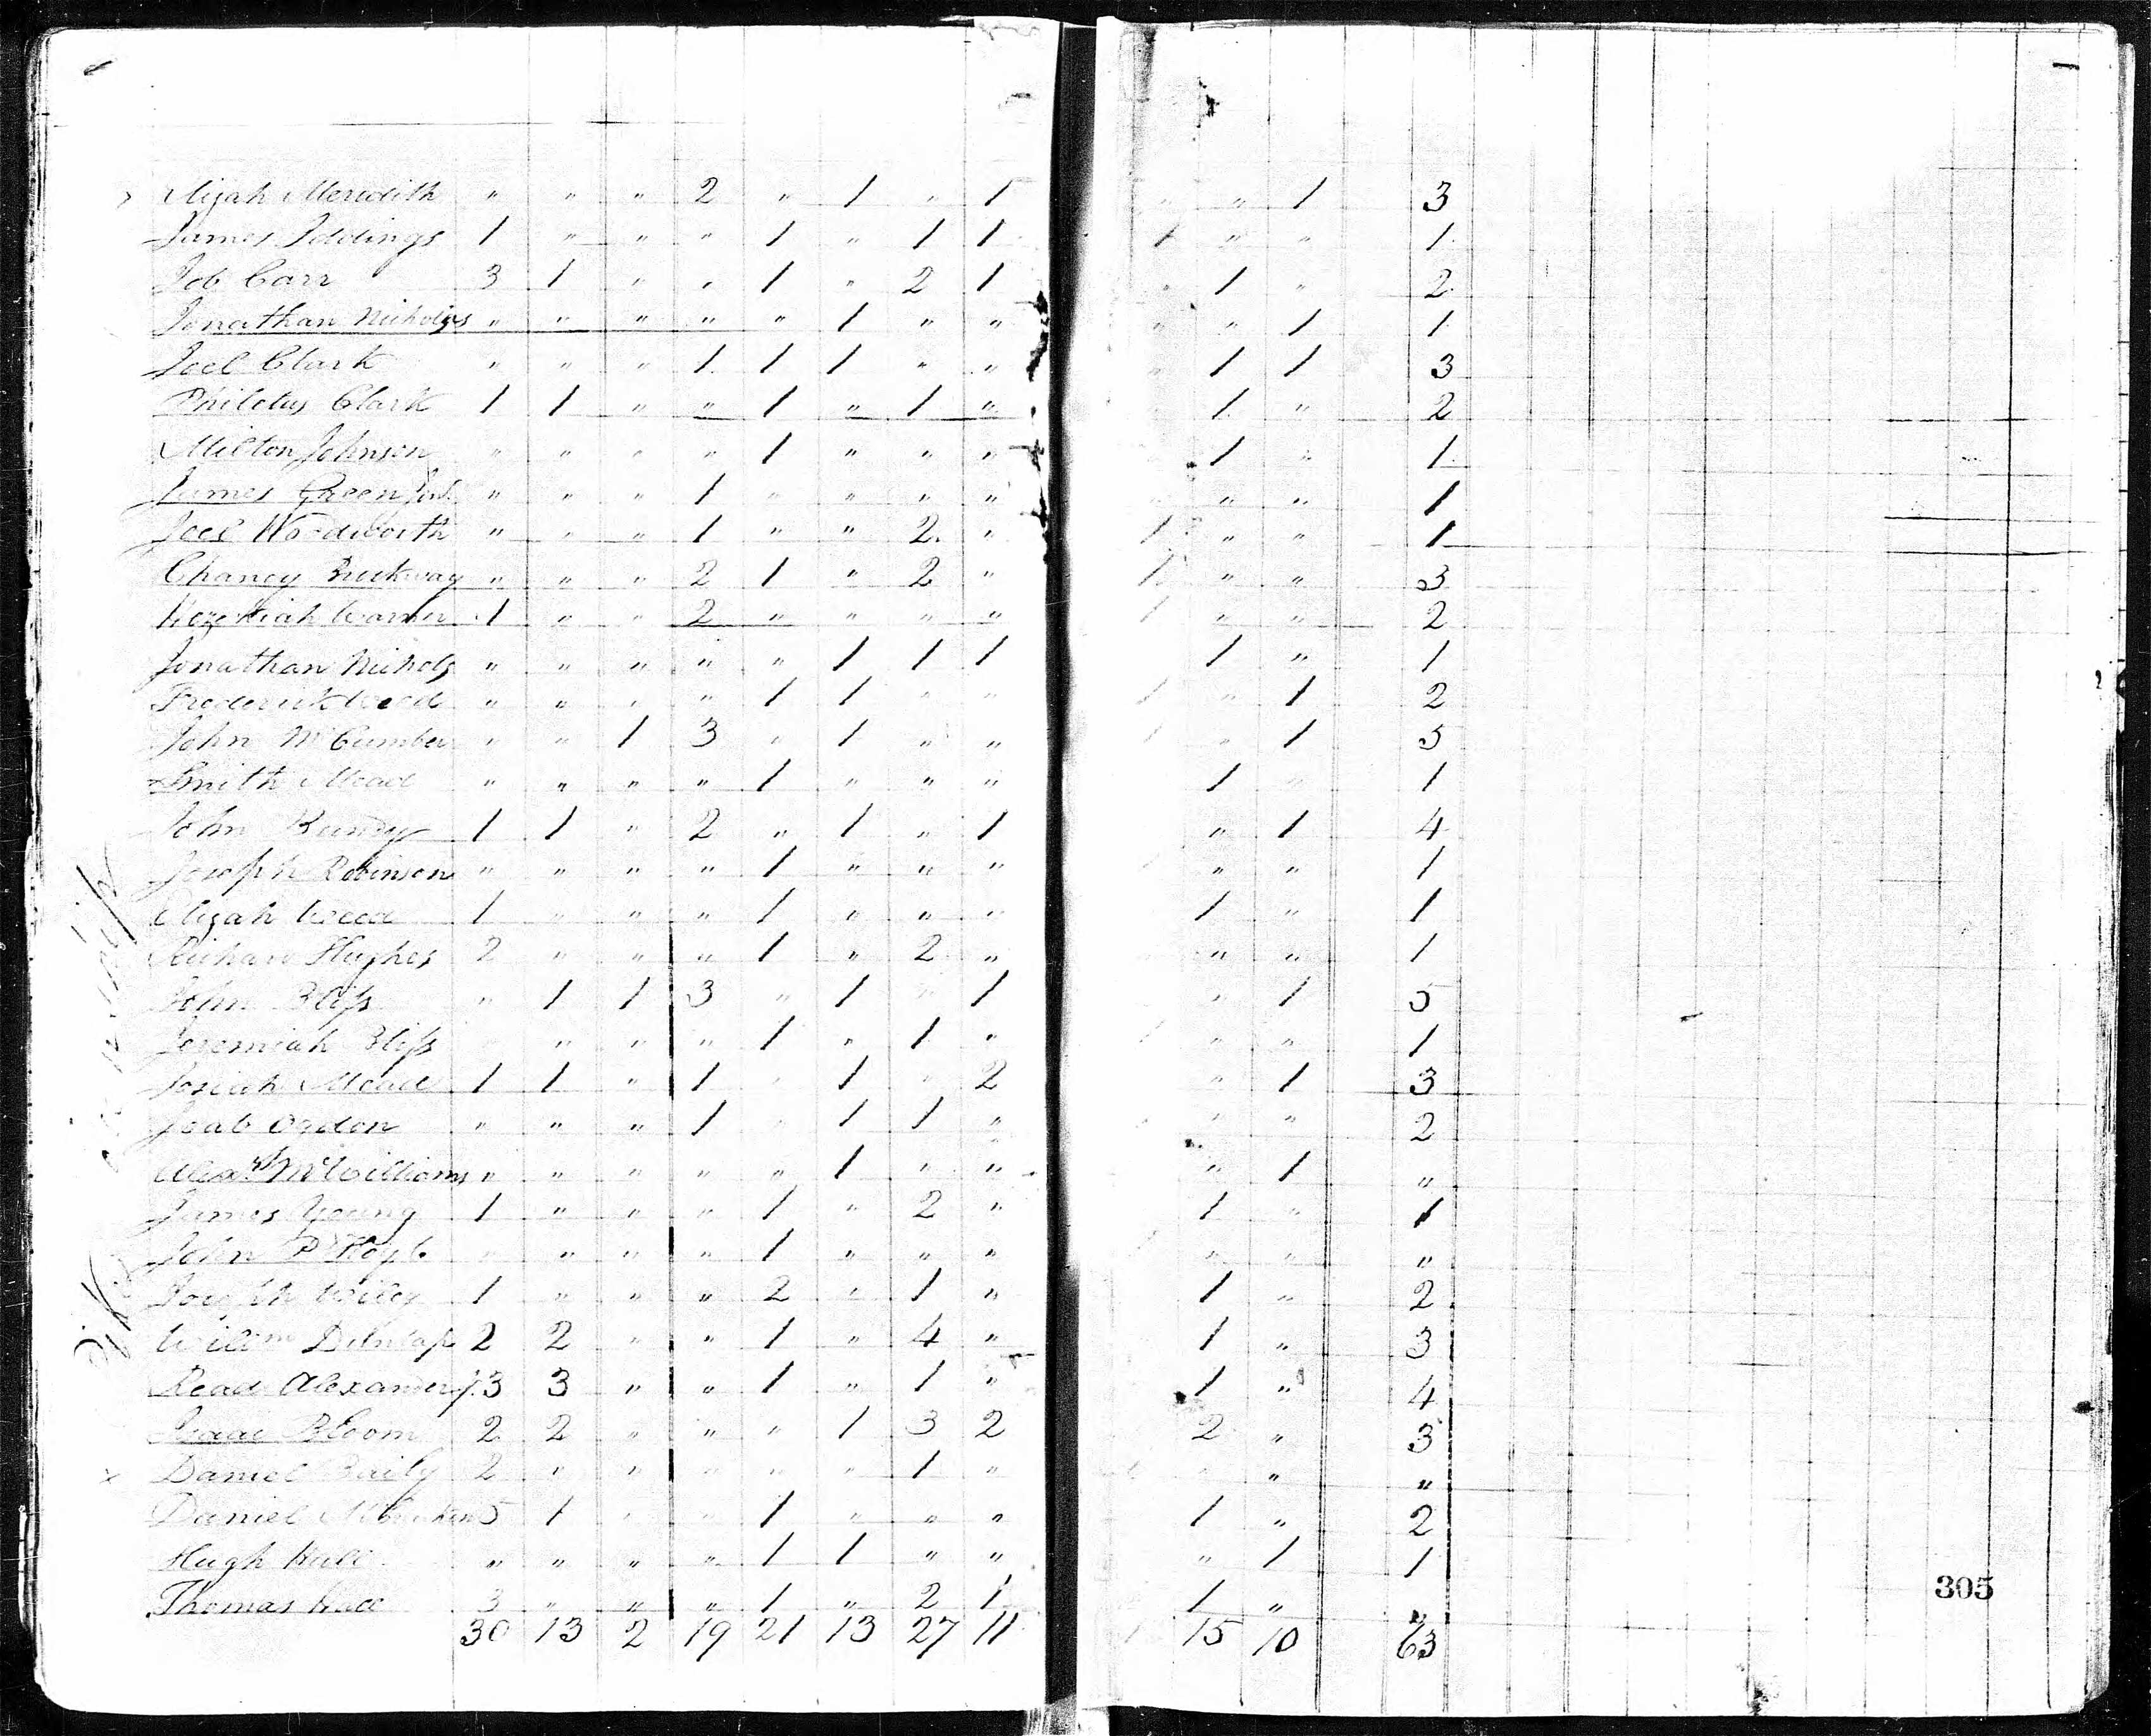 Elijah Meredith " " " 2 " 1 " 1 " " 1 3
James Iddings 1 " " " 1 " 1 1 1 " " 1
Job Carr 3 1 " " 1 " 2 1 " 1 " 2
Jonathan Nichols " " " " " 1 " " " " 1 1
Joel Clark " " " 1 1 1 " " " 1 1 3
Philetus Clark 1 1 " " 1 " 1 " 1 " 2
Milton Johnson " " " " 1 " " " 1 " 1
James Green " " " 1 " " " " " " 1
Joel Woodworth " " " 1 " " 2 " 1 " " 1
Chancy " " " 2 1 " 2 " 1 " " 3
Hezekiah Warner 1 " " 2 " " " " 1 " " 2
Jonathan Nichols " " " " " 1 1 1 1 " 1
Frederick Weed " " " " 1 1 " " 1 " 1 2
John McCumber " " 1 3 " 1 " " 1 " 1 5
Smith Mead " " " " 1 " " " 1 " 1
John Bundy 1 1 " 2 " 1 " 1 " 1 4
Joseph Robinson " " " " 1 " " " " " 1
Elijah Weed 1 " " " 1 " " " 1 " 1
Hughes 2 " " " 1 " 2 " " " 1
John Bliss " 1 1 3 " 1 " 1 " 1 5
Jeremiah Bliss " " " " 1 " 1 " 1 " " 1
Josiah Mead 1 1 " 1 " 1 " 2 " 1 3
Joab Ogden " " " 1 " 1 1 " " " 2
Alexr McWilliams " " " " " 1 " " " 1 "
James Young 1 " " " 1 " 2 " 1 " 1
John P Hoyt " " " " 1 " " " 1 " " "
Joseph Wiley 1 " " " 2 " 1 " 1 " 2
Willm Dunlap 2 2 " " 1 " 4 " 1 " 3
Read Alexander 3 3 " " 1 " 1 " 1 " 4
Isaac Bloom 2 2 " " " 1 3 2 2 " 3
Daniel Baily 2 " " " " " 1 " " " "
Daniel 5 1 " " 1 " " " 1 " 2
Hugh Hall " " " " 1 1 " " " 1 1
Thomas Hall 3 " " " 1 " 2 1 1 " "
30 13 2 19 21 13 27 11 15 10 63
305